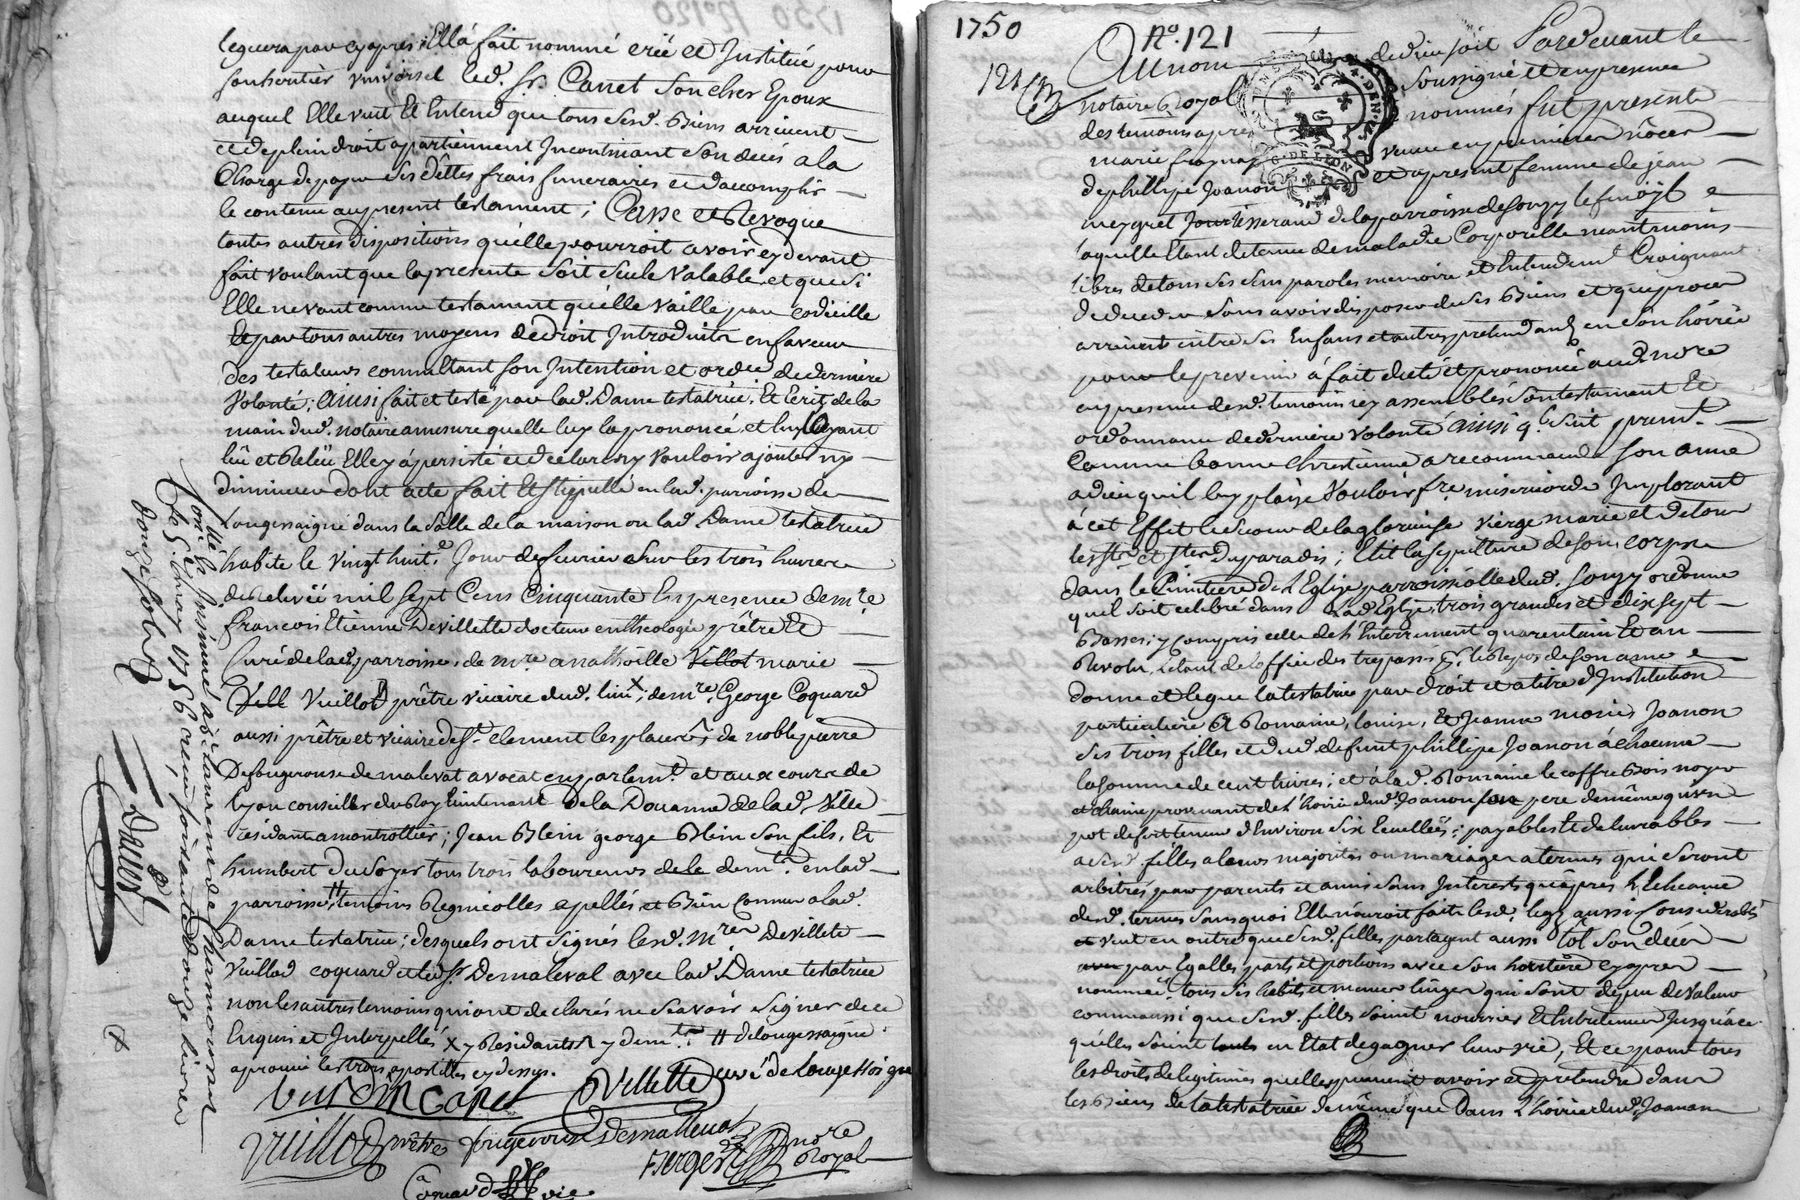 lequera par cy apres: Ella fait nommé crée et Institué pour
son heritier universel led. Sr. Carret Son cher Epoux
auquel Elle veut Et Entend que tous sesd. Biens arrivent
et de plein droit apartiennent Incontinant Son decés a la
Charge de payer ses dêttes frais funeraires et d'accomplir
le contenu au present testament; Casse et Revoque
toutes autres dispositions qu'elle pourroit avoir cy devant
fait voulant que la presente Soit Seule Valable et que si
Elle ne vaut comme testament qu'elle vaille par codicille
Et par tous autres moyens de droit Introduits en faveur
des testateurs connaittant son Intention et ordre de derniere
Volonté; Ainsi fait et testé par lad. Dame testatrice, Et Ecrit de la
main dud. notaire a mesure quelle luy la prononcé, et luy ayant
lû et Relüe Elle y a persisté et declare ny vouloir ajouter ny
diminuer dont acte fait Et stipullé en lad. parroisse de
Longessaigne dans la Salle de la maison ou lad. Dame testatrice
habite le vingt huite. Jour de fevrier Sur les trois heures
de relevée mil Sept Cens Cinquante En presence de mre.
francois Etienne Devillette docteur en theologie prêtre Et
Curé de lad. parroisse, de mre anathoille Villot marie
Vill Vuillod prêtre vicaire dud. lieu x; de mre. George Coquard
aussi prêtre et vicaire de St. Clement les places, de noble pierre
Defougerouse de malevat avocat en parlemt. et aux cours de
Lyon conseiller du Roy Lieutenant de la Douanne de lad. Ville
residant a montrottier; Jean Blein george Blein Son fils, Et
humbert Dusoyer tous trois laboureurs de le demt. en lad.
parroisse, # temoins Regnicolles apellés et Bien connus a lad.
Dame testatrice; desquels ont signés lesd. Mres. Devillete
Vuillod coquard et led. Sr. Demaleval avec lad. Dame testatrice
non les autres temoins qui ont declarés ne Scavoir Signer de ce
Enquis et Interpellés x y Residants y demt. # de longessaigne
aprouvé les trois apostilles cy dessus.
DVillette curé de longessaigne
Vuillod prêtre fougerouse Demalleval
Berger nore Royal
Coquard vic.
Controllé & Insinué a St Laurent de Chamousset
le 5e. may 1756 reçu soixante douze livres
douze sols
Dalles
1750 No. 121
121
Au nom de dieu soit Pardevant le
notaire Royal Soussigné et en presence
des temoins apres nommés fut presente
marie veuve en premiere nôces
de phillipe Joanon et apresent femme de jean
meygret tisserand de la parroisse de Longy le
laquelle Etant detenue de maladie Corporelle neantmoins
libres de tous ses sens paroles memoire et Entendemt. Craignant
de deceder Sans avoir disposer de ses Biens et que proces
arrivent entre ses Enfans et autres pretendants en Son hoirie
pour le prevenir à fait dicté et prononcé aud. nore
en presence desd. temoins cy assemblés Son testament Et
ordonnance de derniere volonté Ainsi q. Suit premt.
Comme bonne chrestienne a recommandé son ame
a dieu qu'il luy plaise Vouloir fre. misericorde Implorant
à cet Effet le Secour de la glorieuse vierge marie et de tous
les Sts. et Stes. du paradis; Elit la sepulture de son corps
dans le Cimetiere de l'Eglise parroissialle dud. Longy ordonne
quil soit celebré dans lad. Eglise, trois grandes et dix sept
Basses, y compris celle de l'Enterrement quarentain Et an
Revolu, Etant de l'office des trepassés pr. le Repos de son ame
donne et legue la testatrice par droit et a titre d'Institution
particuliere A Romaine, louise, Et Jeanne mories Joanon
Ses trois filles et dud. defunt phillipe Joanon à chacune
la somme de cent livres; et à lad. Romaine le coffre Bois noyer
et chaine provenant de l'hoirie dud. Joanon son pere de même qu'un
pot de fert teneur d'Environ six Ecuellées; payables Et delivrables
a sesd. filles a leurs majorités ou mariages a termes qui seront
arbitrés par parents et amis sans Interests qu'apres l'Echeance
desd. termes Sans quoi Elle n'auroit faite lesd. legs aussi considerables
et veut en outre que sesd. filles partagent aussi tot son decés
par Egalles parts et portions avec Son heritiere cy apres
nommée, tous ses habits et menus linges qui sont de peu de valeur
comm'aussi que sesd. filles soient nourries Et Entretenues Jusqu'a ce
qu'elles soient en Etat de gagner leur vie, Et ce pour tous
les droits de legitimes qu'elles peuvent avoir et pretendre dans
les Biens de la testatrice de même que Dans l'hoirie dud. Joanon